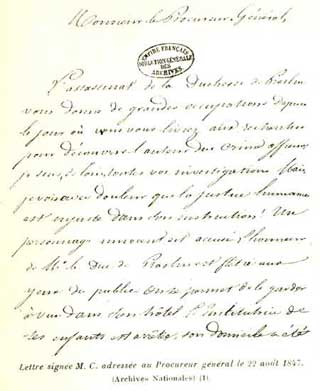 Monsieur le Procureur Général,
EMPIRE FRANÇAIS
DIRECTION GÉNÉRALE
DES
ARCHIVES
L'assassinat de la Duchesse de Praslin
vous donne de grandes occupations depuis
le jour où vous vous livrez aux recherches
pour découvrir l'auteur du crime affreux
je suis toutes vos investigations Mais
je vois avec douleur que la justice humaine
est dans son instruction! Un
personnage innocent est accusé l'honneur
de Mr. le Duc de Praslin est flétri aux
yeux du public On se permet de le garder
à vue dans son hôtel L'Institutrice de
ses enfants est arrêtée, son domicile a été
Lettre signée M. C. adressée au Procureur général le 22 août 1847.
(Archives Nationales) (1).